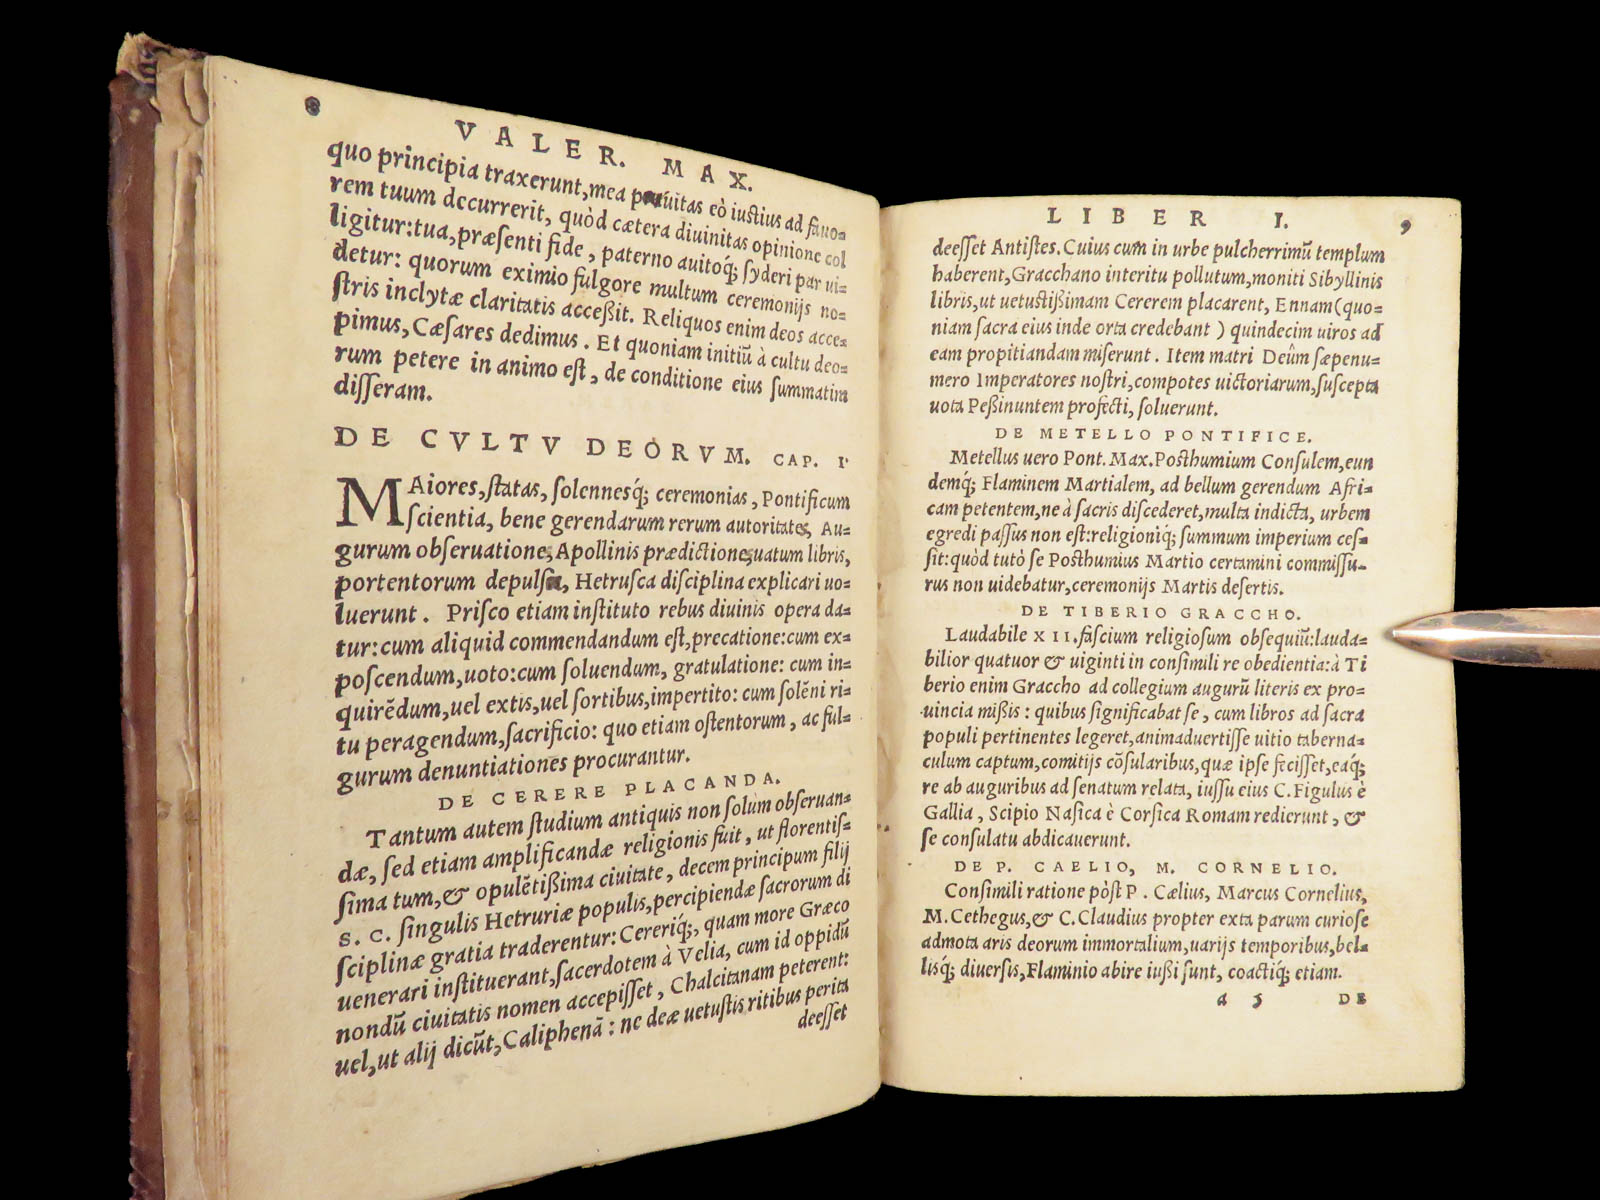 8
VALER. MAX.
quo principia traxerunt, mea paruitas eò iustius ad fauo-
rem tuum decurrerit, quòd cætera diuinitas opinione col
ligitur: tua, præsenti fide, paterno auitoq́; syderi par ui-
detur: quorum eximio fulgore multum ceremonijs no-
stris inclytæ claritatis acceßit. Reliquos enim deos acce-
pimus, Cæsares dedimus. Et quoniam initiũ à cultu deo-
rum petere in animo est, de conditione eius summatim
disseram.
DE CVLTV DEORVM. CAP. I
MAiores, statas, solennesq́; ceremonias, Pontificum
scientia, bene gerendarum rerum autoritate, Au-
gurum obseruatione, Apollinis prædictione, uatum libris,
portentorum depulsa, Hetrusca disciplina explicari uo-
luerunt. Prisco etiam instituto rebus diuinis opera da-
tur: cum aliquid commendandum est, precatione: cum ex-
poscendum, uoto: cum soluendum, gratulatione: cum in-
quirẽdum, uel extis, uel sortibus, impertito: cum solẽni ri-
tu peragendum, sacrificio: quo etiam ostentorum, ac ful-
gurum denuntiationes procurantur.
DE CERERE PLACANDA.
Tantum autem studium antiquis non solum obseruan-
dæ, sed etiam amplificandæ religionis fuit, ut florentis-
sima tum, & opulẽtißima ciuitate, decem principum filij
S. C. singulis Hetruriæ populis, percipiendæ sacrorum di
sciplinæ gratia traderentur: Cereriq́;, quam more Græco
uenerari instituerant, sacerdotem à Velia, cum id oppidũ
nondũ ciuitatis nomen accepisset, Chalcitanam peterent:
uel, ut alij dicũt, Caliphenã: ne deæ uetustis ritibus perita
deesset
LIBER I.
9
deesset Antistes. Cuius cum in urbe pulcherrimũ templum
haberent, Gracchano interitu pollutum, moniti Sibyllinis
libris, ut uetustißimam Cererem placarent, Ennam (quo-
niam sacra eius inde orta credebant) quindecim uiros ad
eam propitiandam miserunt. Item matri Deûm sæpenu-
mero Imperatores nostri, compotes uictoriarum, suscepta
uota Peßinuntem profecti, soluerunt.
DE METELLO PONTIFICE.
Metellus uero Pont. Max. Posthumium Consulem, eun
demq́; Flaminem Martialem, ad bellum gerendum Afri-
cam petentem, ne à sacris discederet, multa indicta, urbem
egredi passus non est: religioniq́; summum imperium ces-
sit: quòd tutò se Posthumius Martio certamini commissu-
rus non uidebatur, ceremonijs Martis desertis.
DE TIBERIO GRACCHO.
Laudabile XII. fascium religiosum obsequiũ: lauda-
bilior quatuor & uiginti in consimili re obedientia: à Ti
berio enim Graccho ad collegium augurũ literis ex pro-
uincia mißis: quibus significabat se, cum libros ad sacra
populi pertinentes legeret, animaduertisse uitio taberna-
culum captum, comitijs cõsularibus, quæ ipse fecisset, eaq́;
re ab auguribus ad senatum relata, iussu eius C. Figulus è
Gallia, Scipio Nasica è Corsica Romam redierunt, &
se consulatu abdicauerunt.
DE P. CAELIO, M. CORNELIO.
Consimili ratione pòst P. Cælius, Marcus Cornelius,
M. Cethegus, & C. Claudius propter exta parum curiose
admota aris deorum immortalium, uarijs temporibus, bel-
lisq́; diuersis, Flaminio abire iußi sunt, coactiq́; etiam.
a 5 DE